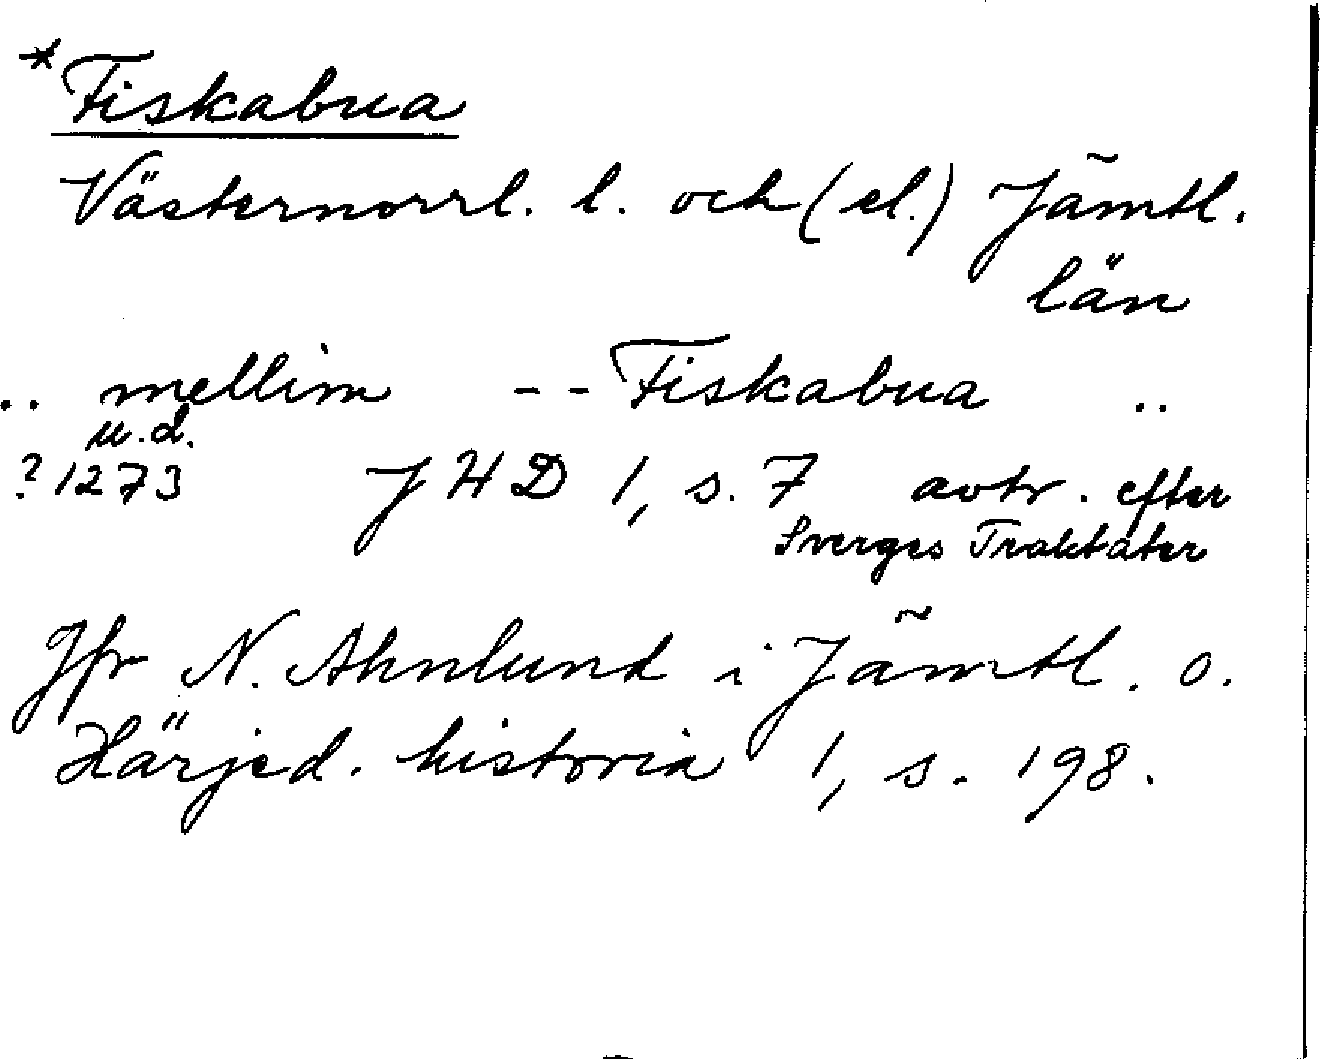 *Fiskabua
Västernorrl. l. och (el.) Jämtl.
län
.. mellim -- Fiskabua ..
u.d.
? 1273 JHD 1, s. 7 avtr. efter
Sverges Traktater
Jfr N. Ahnlund i Jämtl. o.
Härjed. historia 1, s. 198.